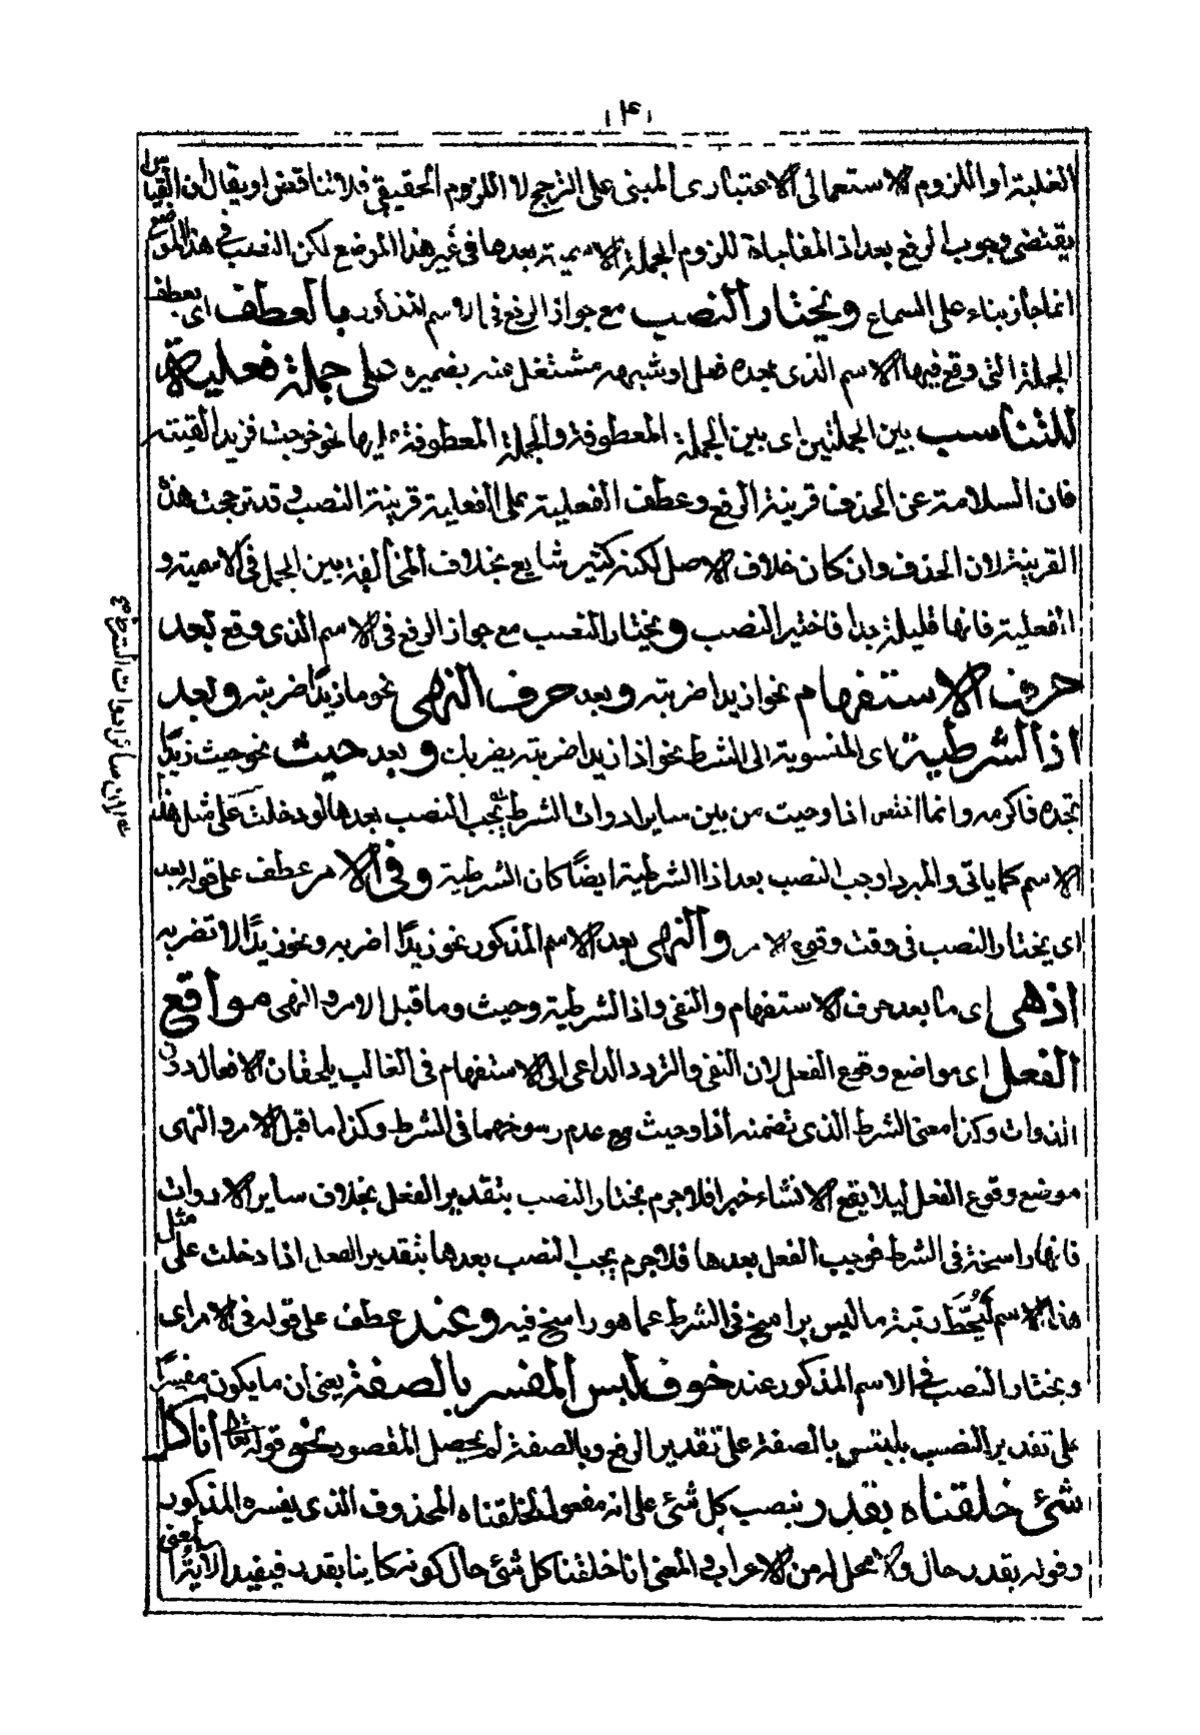 ١٤١
الغلبة او اللزوم الاستعمالى الاعتبارى المبنى على الترجيح لا اللزوم الحقيقي فلا تناقض او يقال ان القياس
يقتضى وجوب الرفع بعد اذا المفاجاة للزوم الجملة الاسمية بعدها فى غير هذا الموضع لكن النصب فى هذا الموضع
انما جاز بناء على السماع ويختار النصب مع جواز الرفع فى الاسم المذكور بالعطف اى بعطف
الجملة التى وقع فيها الاسم الذى بعده فعل او شبهه مشتغل عنه بضميره على جملة فعلية
للتناسب بين الجملتين اى بين الجملة المعطوفة والجملة المعطوفة اليها نحو خرجت فزيدا لقيته
فان السلامة عن الحذف قرينة الرفع وعطف الفعلية على الفعلية قرينة النصب وقد ترجحت هذه
القرينة لان الحذف وان كان خلاف الاصل لكنه كثير شايع بخلاف المخالفة بين الجمل فى الاسمية و
الفعلية فانها قليلة جدا فاختير النصب ويختار النصب مع جواز الرفع فى الاسم الذى وقع بعد
حرف الاستفهام نحو ازيدا ضربته وبعد حرف النهى نحو ما زيدًا ضربته وبعد
اذا الشرطية اى المنسوبة الى الشرط نحو اذا زيدا ضربته يضربك وبعد حيث نحو حيث زيدًا
تجده فاكرمه وانما اختص اذا وحيث من بين ساير ادوات الشرط يجب النصب بعدها لو دخلت على مثل هذا
الاسم كما ياتى والمبرد اوجب النصب بعد اذا الشرطية ايضًا كان الشرطية وفى الامر عطف على قوله بعد
اى يختار النصب فى وقت وقوع الامر والنهى بعد الاسم المذكور نحو زيدًا اضربه ونحو زيدًا لا تضربه
اذ هى اى ما بعد حرف الاستفهام والنفى واذا الشرطية وحيث وما قبل الامر والنهى مواقع
الفعل اى مواضع وقوع الفعل لان النفى والتردد الداعى الى الاستفهام فى الغالب يلحقان الافعال دون
الذوات وكذا معنى الشرط الذى تضمنه اذا وحيث مع عدم رسوخهما فى الشرط وكذا ما قبل الامر والنهى
موضع وقوع الفعل ليلا يقع الانشاء خبرا فلا جرم يختار النصب بتقدير الفعل بخلاف ساير الادوات
فانها راسخة فى الشرط فوجب الفعل بعدها فلا جرم يجب النصب بعدها بتقدير الفعل اذا دخلت على مثل
هذا الاسم ليُحَطّ رتبة ما ليس براسخ فى الشرط عما هو راسخ فيه وعند عطف على قوله فى الامر اى
ويختار النصب فى الاسم المذكور عند خوف لبس المفسر بالصفة يعنى ان ما يكون مفسرًا
على تقدير النصب يلتبس بالصفة على تقدير الرفع وبالصفة لم يحصل المقصود نحو قوله تعالى انا كل
شئ خلقناه بقدر بنصب كل شئ على انه مفعول لخلقناه المحذوف الذى يفسره المذكور
وقوله بقدر حال ولا محل له من الاعراب والمعنى انا خلقنا كل شئ حال كونه كاينا بقدر فيفيد الآية المعنى
اى لان سائر ادوات الشرط